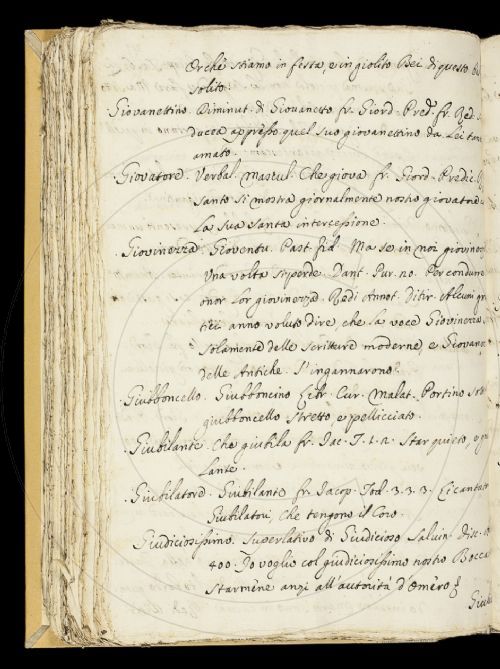 Orchè stiamo in festa, e in giolito Bei di questo
solito.
Giovanettino. Diminut. di Giovanetto fr. Giord. Pred. fr. Red.
ducea appresso quel suo giovanettino da Lei tan
amato.
Giovatore. Verbal. Mascul. Che giova fr. Giord. Predic.
Santo si mostra giornalmente nostro giovatore
La sua santa intercessione.
Giovinezza. Gioventu. Past. fid. Ma se in noi giovinez
Una volta si perde. Dant. Pur. 20. Per condurre
onor lor giovinezza. Redi Annot. Ditir. Alcuni
tici anno voluto dire, che la voce Giovinezza
solamente delle scritture moderne e Giovane
delle Antiche. S'ingannarono.
Giubboncello. Giubboncino Libr. Cur. Malat. Portino
giubboncello stretto, e pellicciato.
Giubilante. Che giubila fr. Iac. T. 1. 2. Star quieto, e giu
lante.
Giubilatore. Giubilante fr. Iacop. Tod. 3. 3. 3. Ei cantato
Giubilatori, che tengono il Coro.
Giudiciosissimo. Superlativo di Giudicioso Salvin. Disc.
400. Io voglio col giudiciosissimo nostro Bocca
Starmene anzi all'autorità d'Omero